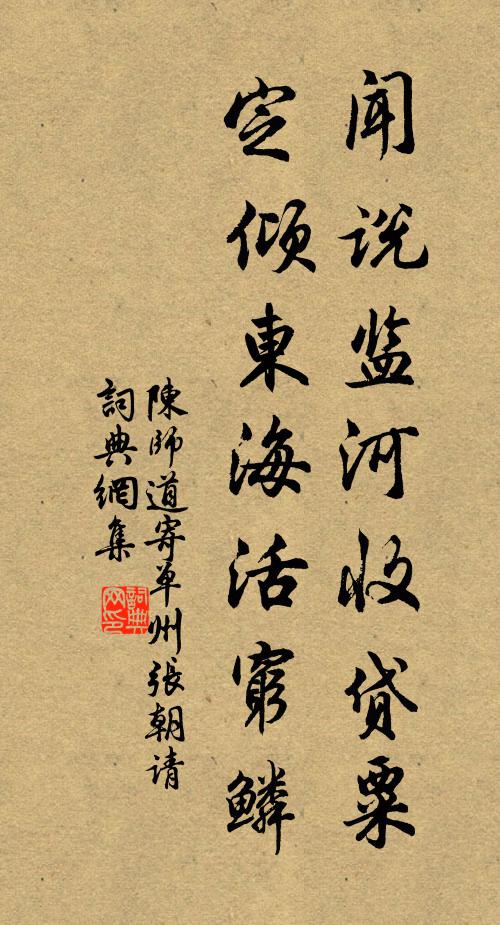 闻说监河收贷粟
定倾東海活窮鳞
陳師道寄单州張朝请
詞典網集
詞典网印